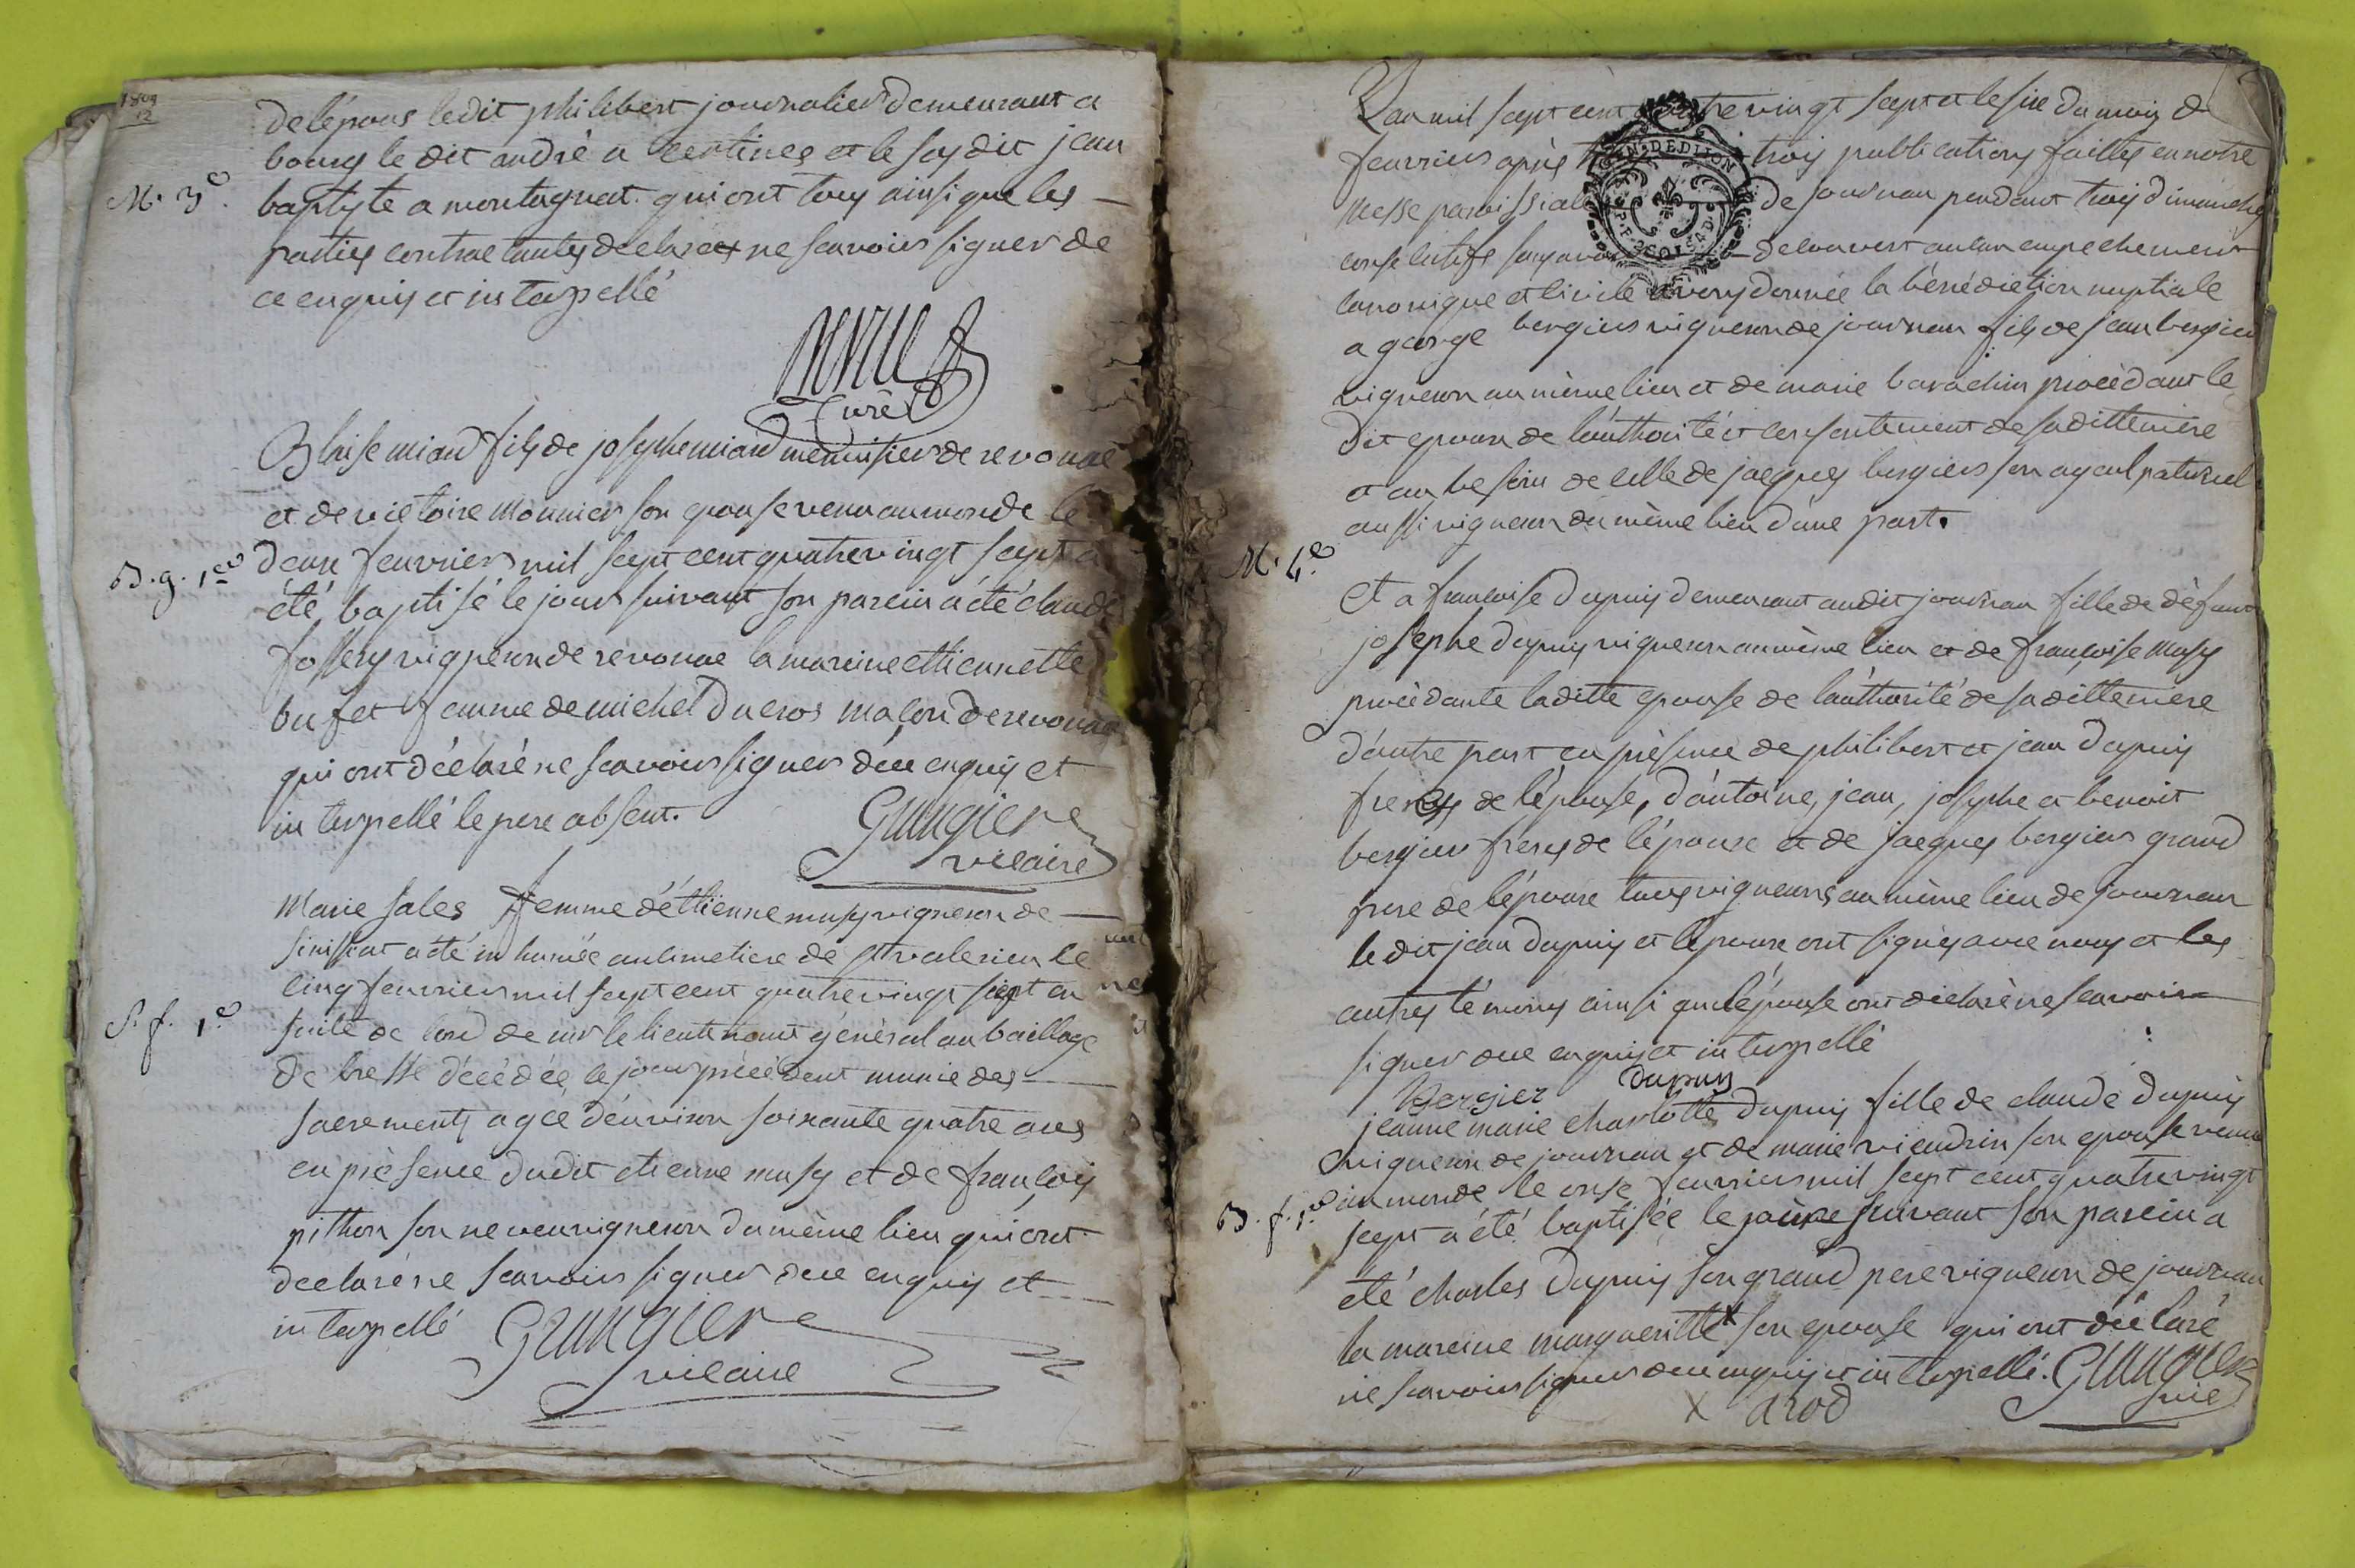 1809
12
de l'époux ledit philibert journalier demeurant a
bourg le dit andré a certines et le susdit jean
M. 3e. baptiste a montagnat. qui ont tous ainsi que les
parties contractantes declarées ne scavoir signer de
ce enquis et interpellé
Curé
Blaise miand fils de josephe miand menuisier de revonas
et de victoire Monnier son epouse venu au monde le
B. g. 1er deux feuvrier mil sept cent quatre vingt sept a
été baptisé le jour suivant son parein a été claude
fossery vigneron de revonas la mareine ettiennette
bufet femme de michel Ducros maçon de revonas
qui ont déclaré ne scavoir signer de ce enquis et
interpellé le pere absent.
Grangier
vicaire
Marie Sales femme d'éttienne musy vigneron de
simissiat a été inhumée au cimetiere de st valerien le
cinq feuvrier mil sept cent quatre vingt sept en
S. f. 1e suite de l'ord de mr le lieutenant général au baillage
de bresse décédée le jour précédent munie des
sacrements agée d'environ soixante quatre ans
en présence dudit etienne musy et de françois
pithon son neveu vigneron du même lieu qui ont
declaré ne scavoir signer de ce enquis et
interpellé Grangier
vicaire
L'an mil sept cent quatre vingt sept et le six du mois de
feuvrier après trois publications faittes en notre
Messe paroissiale de journan pendant trois dimanches
consecutifs sans avoir decouvert aucun empechement
canonique et civile avons donnée la bénédiction nuptiale
a george bergier vigneron de journan fils de jean bergier
vigneron au même lieu et de marie barachin procèdant le
dit epoux de l'authorité et consentement de sa ditte mère
et au besoin de celle de jacques bergier son ayeul paternel
aussi vigneron du même lieu d'une part.
M. 4e.
Et a françoise Dupuis demeurant audit journan fille de défunt
josephe dupuis vigneron au même lieu et de françoise musy
procèdante la ditte epouse de l'authorité de sa ditte mere
d'autre part en présence de philibert et jean dupuis
freres de l'épouse, d'antoine, jean, josephe et benoit
bergier freres de l'époux et de jacques bergier grand
pere de l'époux tous vignerons au même lieu de journan
le dit jean dupuis et l'époux ont signés avec nous et les
autres témoins ainsi que l'épouse ont déclaré ne scavoir
signer de ce enquis et interpellé
Bergier dupuis
jeanne marie charlotte dupuis fille de claude dupuis
vigneron de journan et de marie viendrin son epouse venue
B. f. 1e au monde le onse feuvrier mil sept cent quatre vingt
sept a été baptisée le jour suivant son parein a
été charles dupuis son grand pere vigneron de journan
la mareine margueritte x son epouse qui ont déclaré
ne scavoir signer de ce enquis et interpellé. Grangier
x arod vic